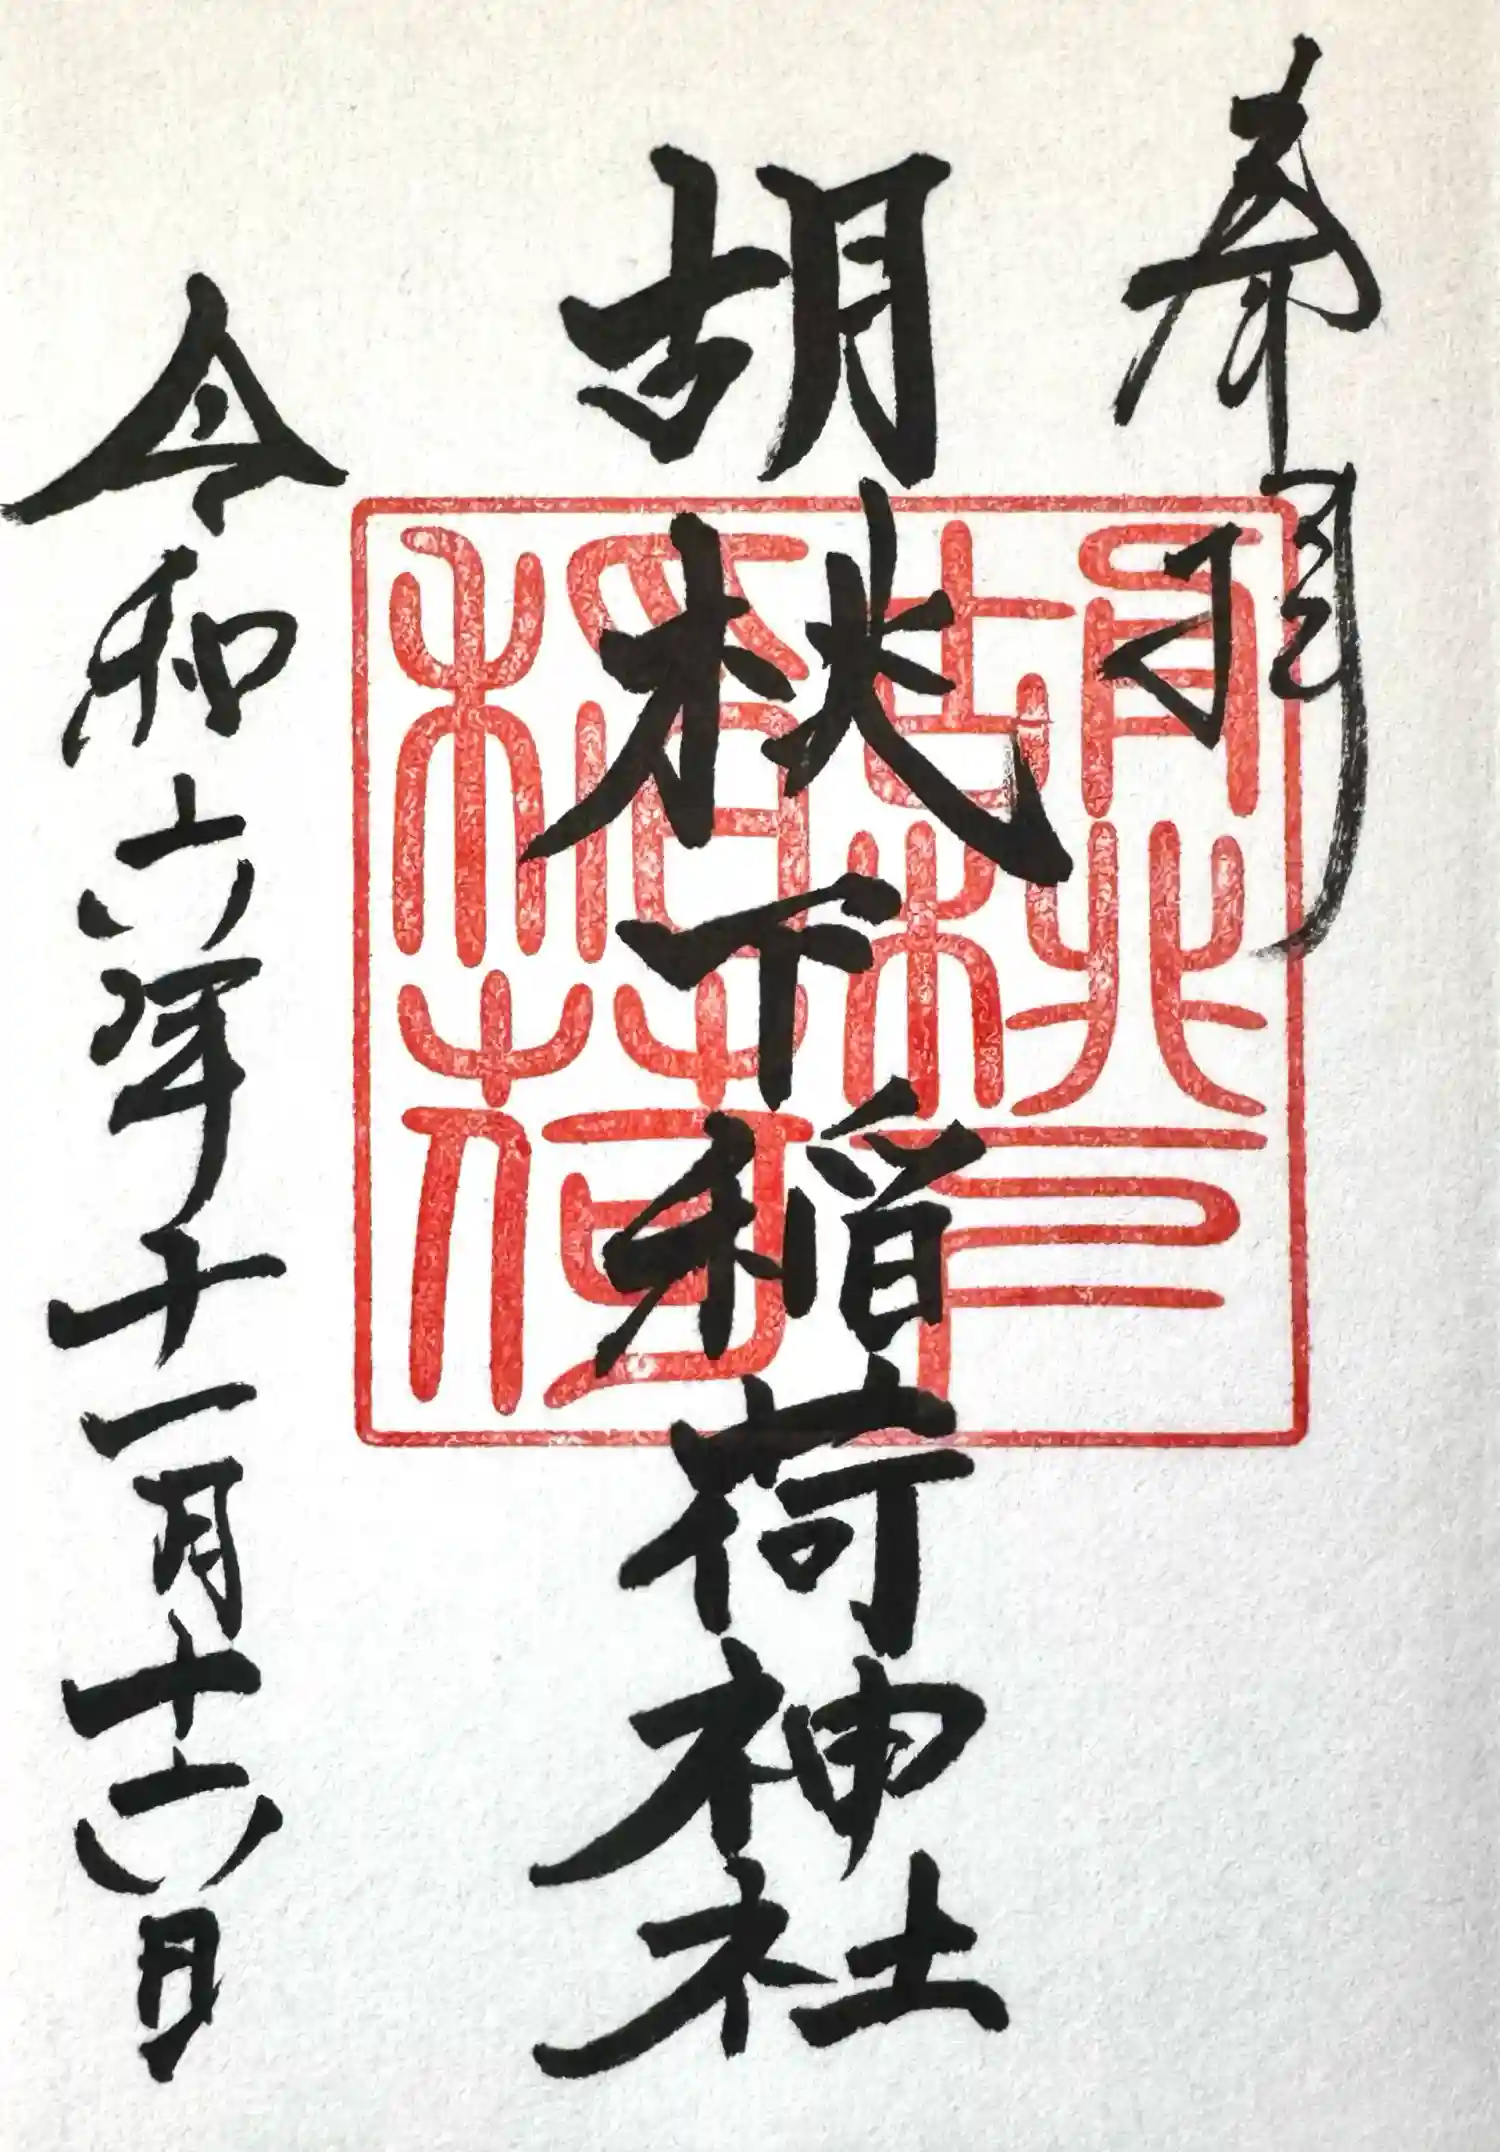 奉拝
胡桃下稲荷神社
胡桃下
稲荷
令和六年十一月十六日